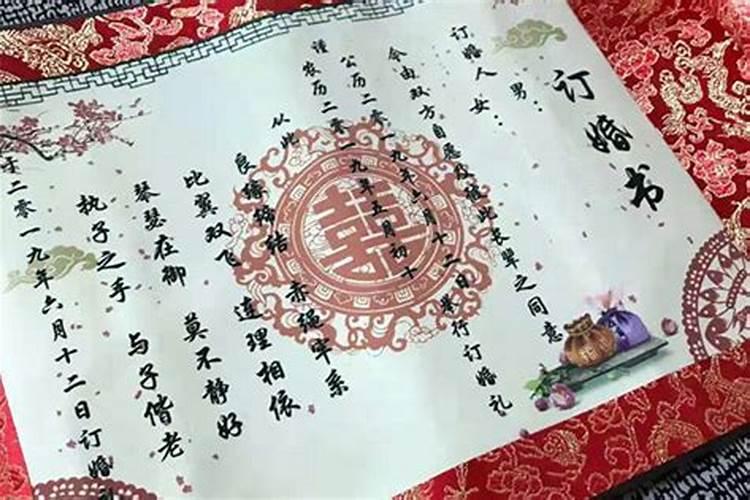 订婚书
男：
订婚人 女：
今由双方自愿及征此长辈之同意
谨 公历二零一九年六月十二日举行订婚礼
农历二零一九年五月初十
从此 良缘缔结 赤绳牢系
比翼双飞 连理相依
琴瑟在御 莫不静好
执子之手 与子偕老
于二零一九年六月十二日订婚